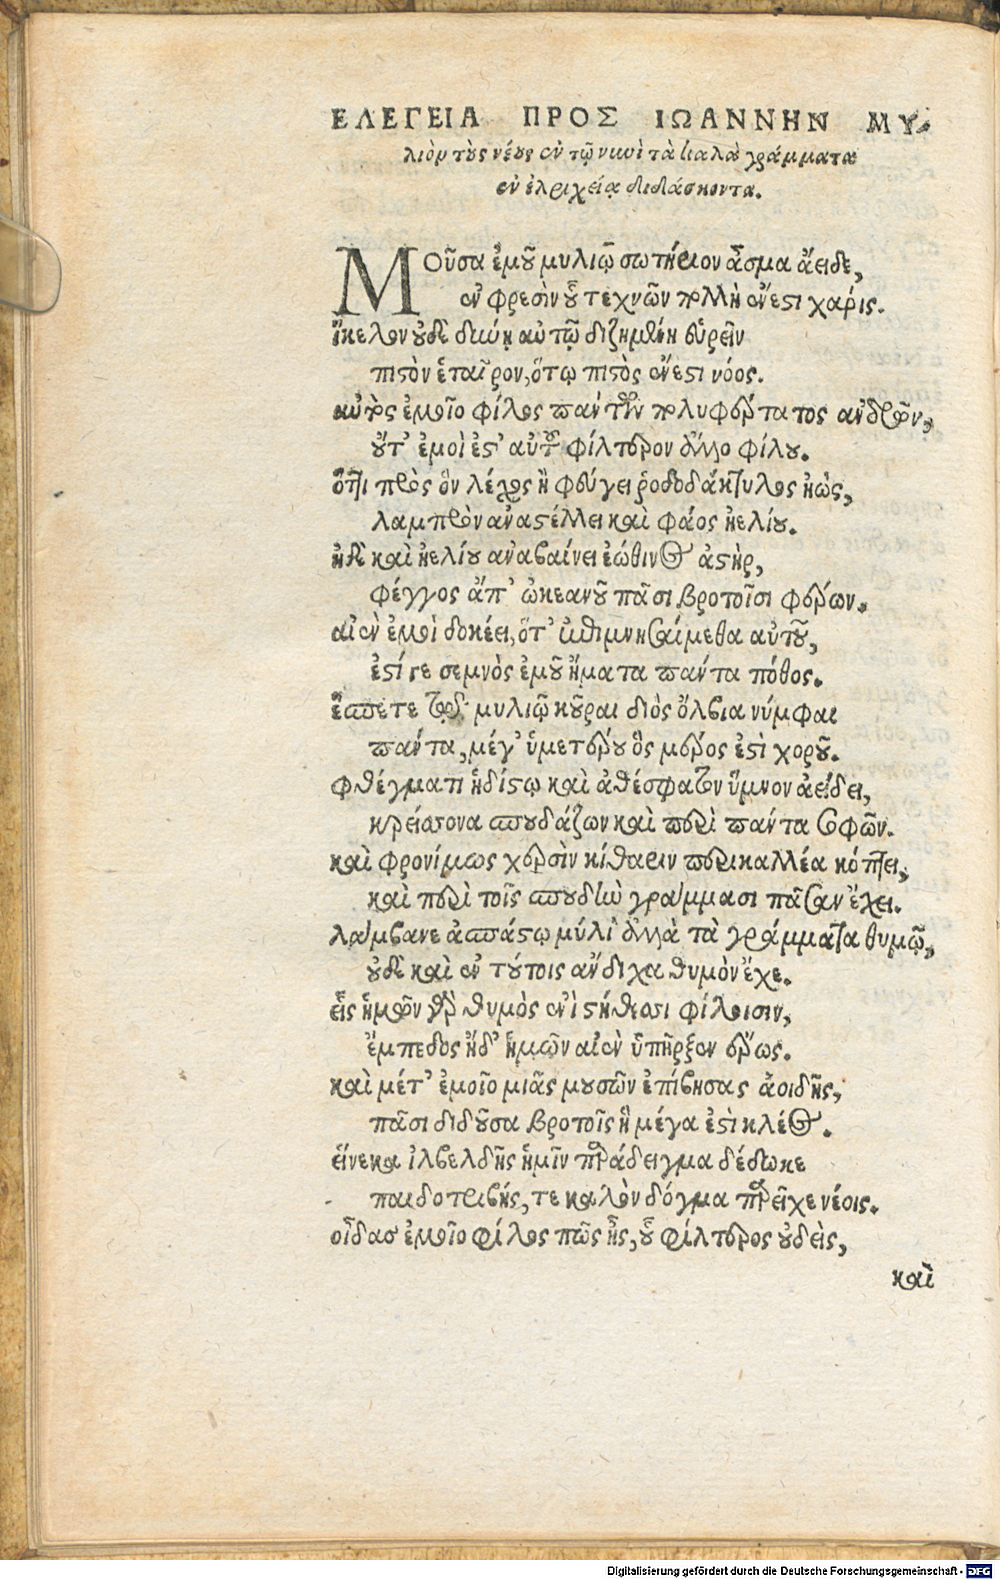 ΕΛΕΓΕΙΑ ΠΡΟΣ ΙΩΑΝΝΗΝ ΜΥ-
λιὸν τοὺς νέους ἐν τῷ νυνὶ τὰ καλὰ γράμματα
ἐν ἐλριχείᾳ διδάσκοντα.
ΜΟῦσα ἐμοῦ μυλιῷ σωτήριον ᾆσμα ἄειδε,
ἐν φρεσὶν οὗ τεχνῶν πολλὴ ἔνεστι χάρις.
ἴκελον οὐδὲ δυνῃ αὐτῷ διζημένη εὑρεῖν
πιστὸν ἑταῖρον, ὅτῳ πιστὸς ἔνεστι νόος.
αὐτὸς ἐμοῖο φίλος πάντων πολυφέρτατος ἀνδρῶν,
οὔτ' ἐμοὶ ἐστ' αὐτοῦ φίλτερον ἄλλο φίλου.
ὅττι πρὸς ὃν λέχος ἢ φεύγει ῥοδοδάκτυλος ἠὼς,
λαμπρὸν ἀναστέλλει καὶ φάος ἠελίου.
ἠδὲ καὶ ἠελίου ἀναβαίνει ἑώθινος ἀστὴρ,
φέγγος ἄπ' ὠκεανοῦ πᾶσι βροτοῖσι φέρων.
αἰὲν ἐμοὶ δοκέει, ὅτ' ἐπιμνησαίμεθα αὐτοῦ,
ἐστί γε σεμνὸς ἐμοῦ ἤματα πάντα πόθος.
ἕσπετε μυλιῷ κοῦραι διὸς ὄλβια νύμφαι
πάντα, μέγ' ὑμετέρου ὃς μέρος ἐστὶ χοροῦ.
φθέγματι ἡδίστῳ καὶ ἀθέσφατον ὕμνον ἀείδει,
κρείασονα σπουδάζων καὶ περὶ πάντα σοφῶν.
καὶ φρονίμως χερσὶν κίθαριν περικαλλέα κόπτει,
καὶ περὶ τοῖς σπουδὴν γράμμασι πᾶσαν ἔχει.
λάμβανε ἀσπάστῳ μύλι' ἀλλὰ τὰ γράμματα θυμῷ,
οὐδὲ καὶ ἐν τούτοις ἄνδιχα θυμὸν ἔχε.
εἷς ἡμῶν γὰρ θυμὸς ἐνὶ στήθεσι φίλοισιν,
ἔμπεδος ἠδ' ἡμῶν αἰὲν ὑπῆρξεν ἔρως.
καὶ μέτ' ἐμοῖο μιᾶς μουσῶν ἐπίβησας ἀοιδῆς,
πᾶσι διδοῦσα βροτοῖς ἣ μέγα ἐστὶ κλέος.
εἵνεκα ἰλβελδῆς ἡμῖν παράδειγμα δέδωκε
παιδοτριβής, τε καλὸν δόγμα παρεῖχε νέοις.
οἶδας ἐμοῖο φίλος πῶς ᾖς, οὗ φίλτερος οὐδεὶς,
καὶ
Digitalisierung gefördert durch die Deutsche Forschungsgemeinschaft - DFG